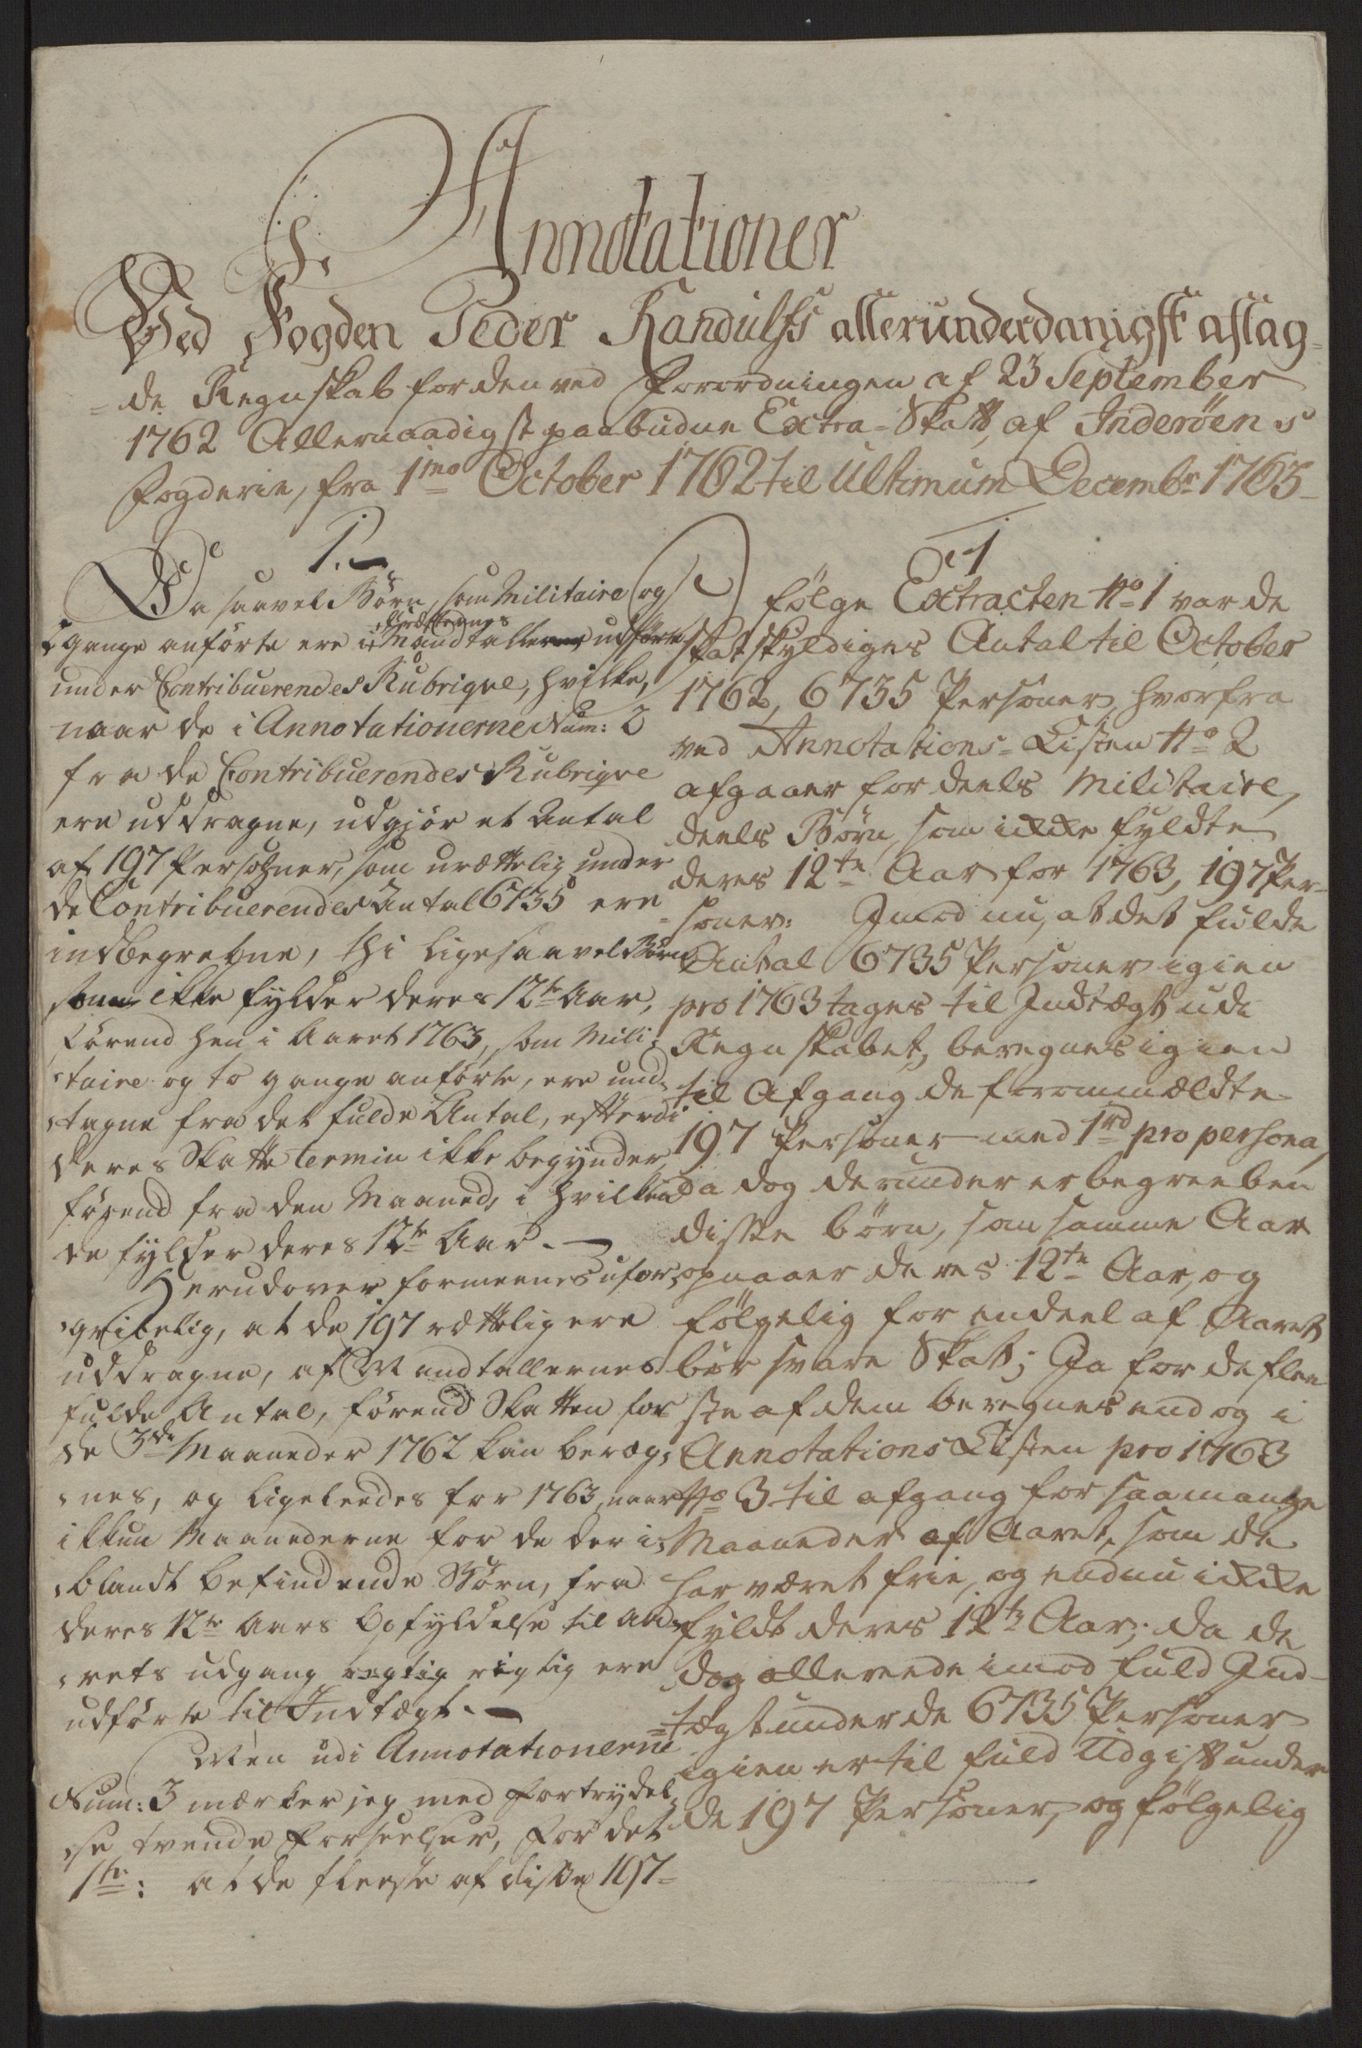 Annotationer
Ved Fogden Peder Randulfs allerunderdanigst aflag-
-de Regnskab for den ved Forordningen af 23 September
1762 Allernaadigst paabudne Extra-Skatt, af Inderöens
Fogderie, fra 1mo October 1762 til Ultimum Decembr 1763
1.
Da saavel Börn, som Militaire og
2 gange anförte ere i Mandtallerne udförte
under Contribuerendes Rubriqve, hvilke,
naar de i Annotationerne Num: 2
fra de Contribuerendes Rubriqve
ere uddragne, udgjör et Antal
af 197 Persohner, som urættelig under
de Contribuerendes Antal 6735 ere
indbegrebne, thi ligesaavel Börn
som ikke fylder deres 12te Aar,
förend hen i Aaret 1763, som Mili-
-taire og to gange anförte, ere und-
-tagne fra det fulde Antal, efterdi
deres Skatte Termin ikke begynder
förend fra den Maaned, i hvilken
de fylder deres 12te Aar.
Herudover formeenes ufor-
-gribelig, at de 197 rættelig ere
uddragne, af Mandtallernes
fulde Antal, förend Skatten for
de 3de Maaneder 1762 kan bereg-
-nes, og ligeleedes for 1763, naar
ikkun Maanederne for de der i-
-blandt befindende Börn, fra
deres 12te Aars Opfyldelse til Aa-
-rets udgang rigtig ere
udförte til Indtægt.
Men udi Annotationerne
Num: 3 mærker jeg med Fortrydel-
-se tvende Forseelser, for det
1te: at de fleeste af disse 197
1
I fölge Extracten No 1 var de
skatskyldiges Antal til October
1762, 6735 Personer, hvorfra
ved Annotations-Listen No 2
afgaaer for deels Militaire,
deels Börn, som ikke fyldte
deres 12te Aar for 1763, 197 Per-
-soner: Imod nu, at det fulde
Antal 6735 Personer igien
pro 1763 tages til Indtægt udi
Regnskabet, beregnes igien
til Afgang de frommældte
197 Personer med 1 rd pro persona,
da dog derunder er begreeben
disse börn, som samme Aar
opnaaer deres 12te Aar, og
fölgelig for endeel af Aaret
bör svare Skatt; Ja for de flee-
ste af dem beregnes end og i
Annotations Listen pro 1763
No 3 til afgang for saamange
Maaneder af Aaret, som de
har været frie, og endnu ikke
fyldt deres 12te Aar; da de
dog allerede imod fuld Ind-
-tægt under de 6735 Personer
igien er til fuld Udgift under
de 197 Personer, og fölgelig